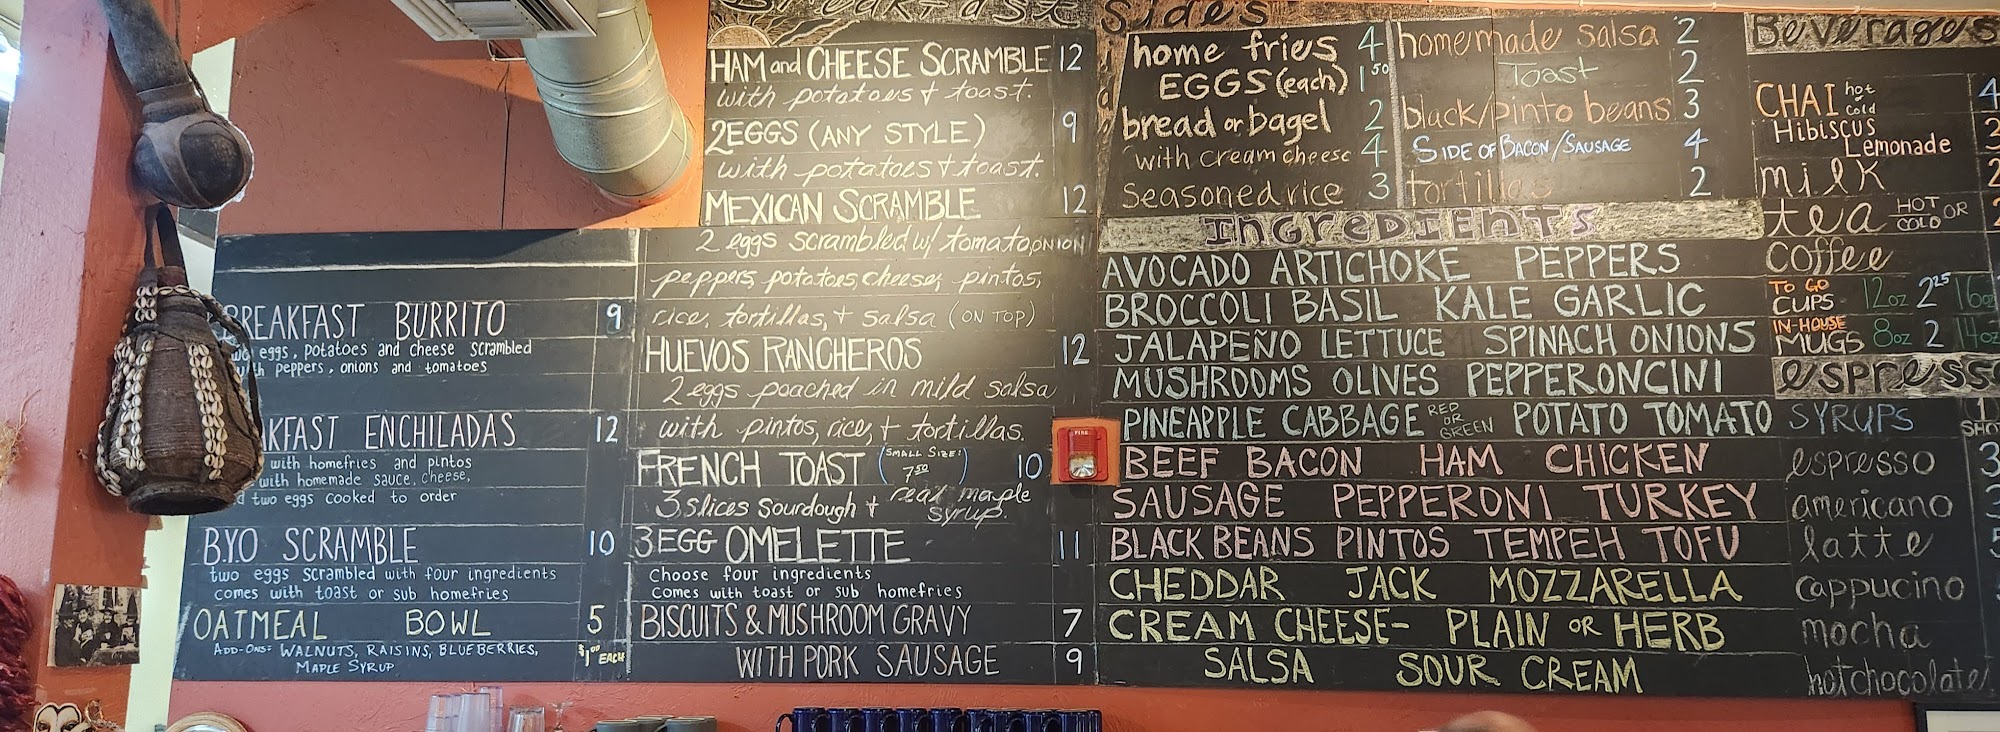 BREAKFAST BURRITO 9
eggs, potatoes and cheese scrambled
peppers, onions and tomatoes
ENCHILADAS 12
with homefries and pintos
with homemade sauce, cheese,
two eggs cooked to order
B.Y.O SCRAMBLE 10
two eggs scrambled with four ingredients
comes with toast or sub homefries
OATMEAL BOWL 5
ADD-ONS: WALNUTS, RAISINS, BLUEBERRIES, $1.00 EACH
MAPLE SYRUP
Breakfast
HAM and CHEESE SCRAMBLE 12
with potatoes + toast.
2 EGGS (ANY STYLE) 9
with potatoes + toast.
MEXICAN SCRAMBLE 12
2 eggs scrambled w/ tomato, ONION
peppers, potatoes, cheese, pintos,
rice, tortillas, + salsa (ON TOP)
HUEVOS RANCHEROS 12
2 eggs poached in mild salsa
with pintos, rice, + tortillas.
FRENCH TOAST (SMALL SIZE: 7.50) 10
3 slices sourdough + real maple
syrup.
3 EGG OMELETTE 11
Choose four ingredients
comes with toast or sub homefries
BISCUITS & MUSHROOM GRAVY 7
WITH PORK SAUSAGE 9
Sides
home fries 4
EGGS (each) 1.50
bread or bagel 2
with cream cheese 4
seasoned rice 3
homemade salsa 2
Toast 2
black/pinto beans 3
SIDE OF BACON/SAUSAGE 4
tortillas 2
INGREDIENTS
AVOCADO ARTICHOKE PEPPERS
BROCCOLI BASIL KALE GARLIC
JALAPEÑO LETTUCE SPINACH ONIONS
MUSHROOMS OLIVES PEPPERONCINI
PINEAPPLE CABBAGE RED OR GREEN POTATO TOMATO
BEEF BACON HAM CHICKEN
SAUSAGE PEPPERONI TURKEY
BLACK BEANS PINTOS TEMPEH TOFU
CHEDDAR JACK MOZZARELLA
CREAM CHEESE- PLAIN OR HERB
SALSA SOUR CREAM
Beverages
CHAI hot or cold 4
Hibiscus
Lemonade
milk
tea HOT OR COLD
coffee
TO GO CUPS 12oz 2.25 16oz
IN-HOUSE MUGS 8oz 2 14oz
espresso
SYRUPS
espresso
americano
latte
cappucino
mocha
hot chocolate
FIRE